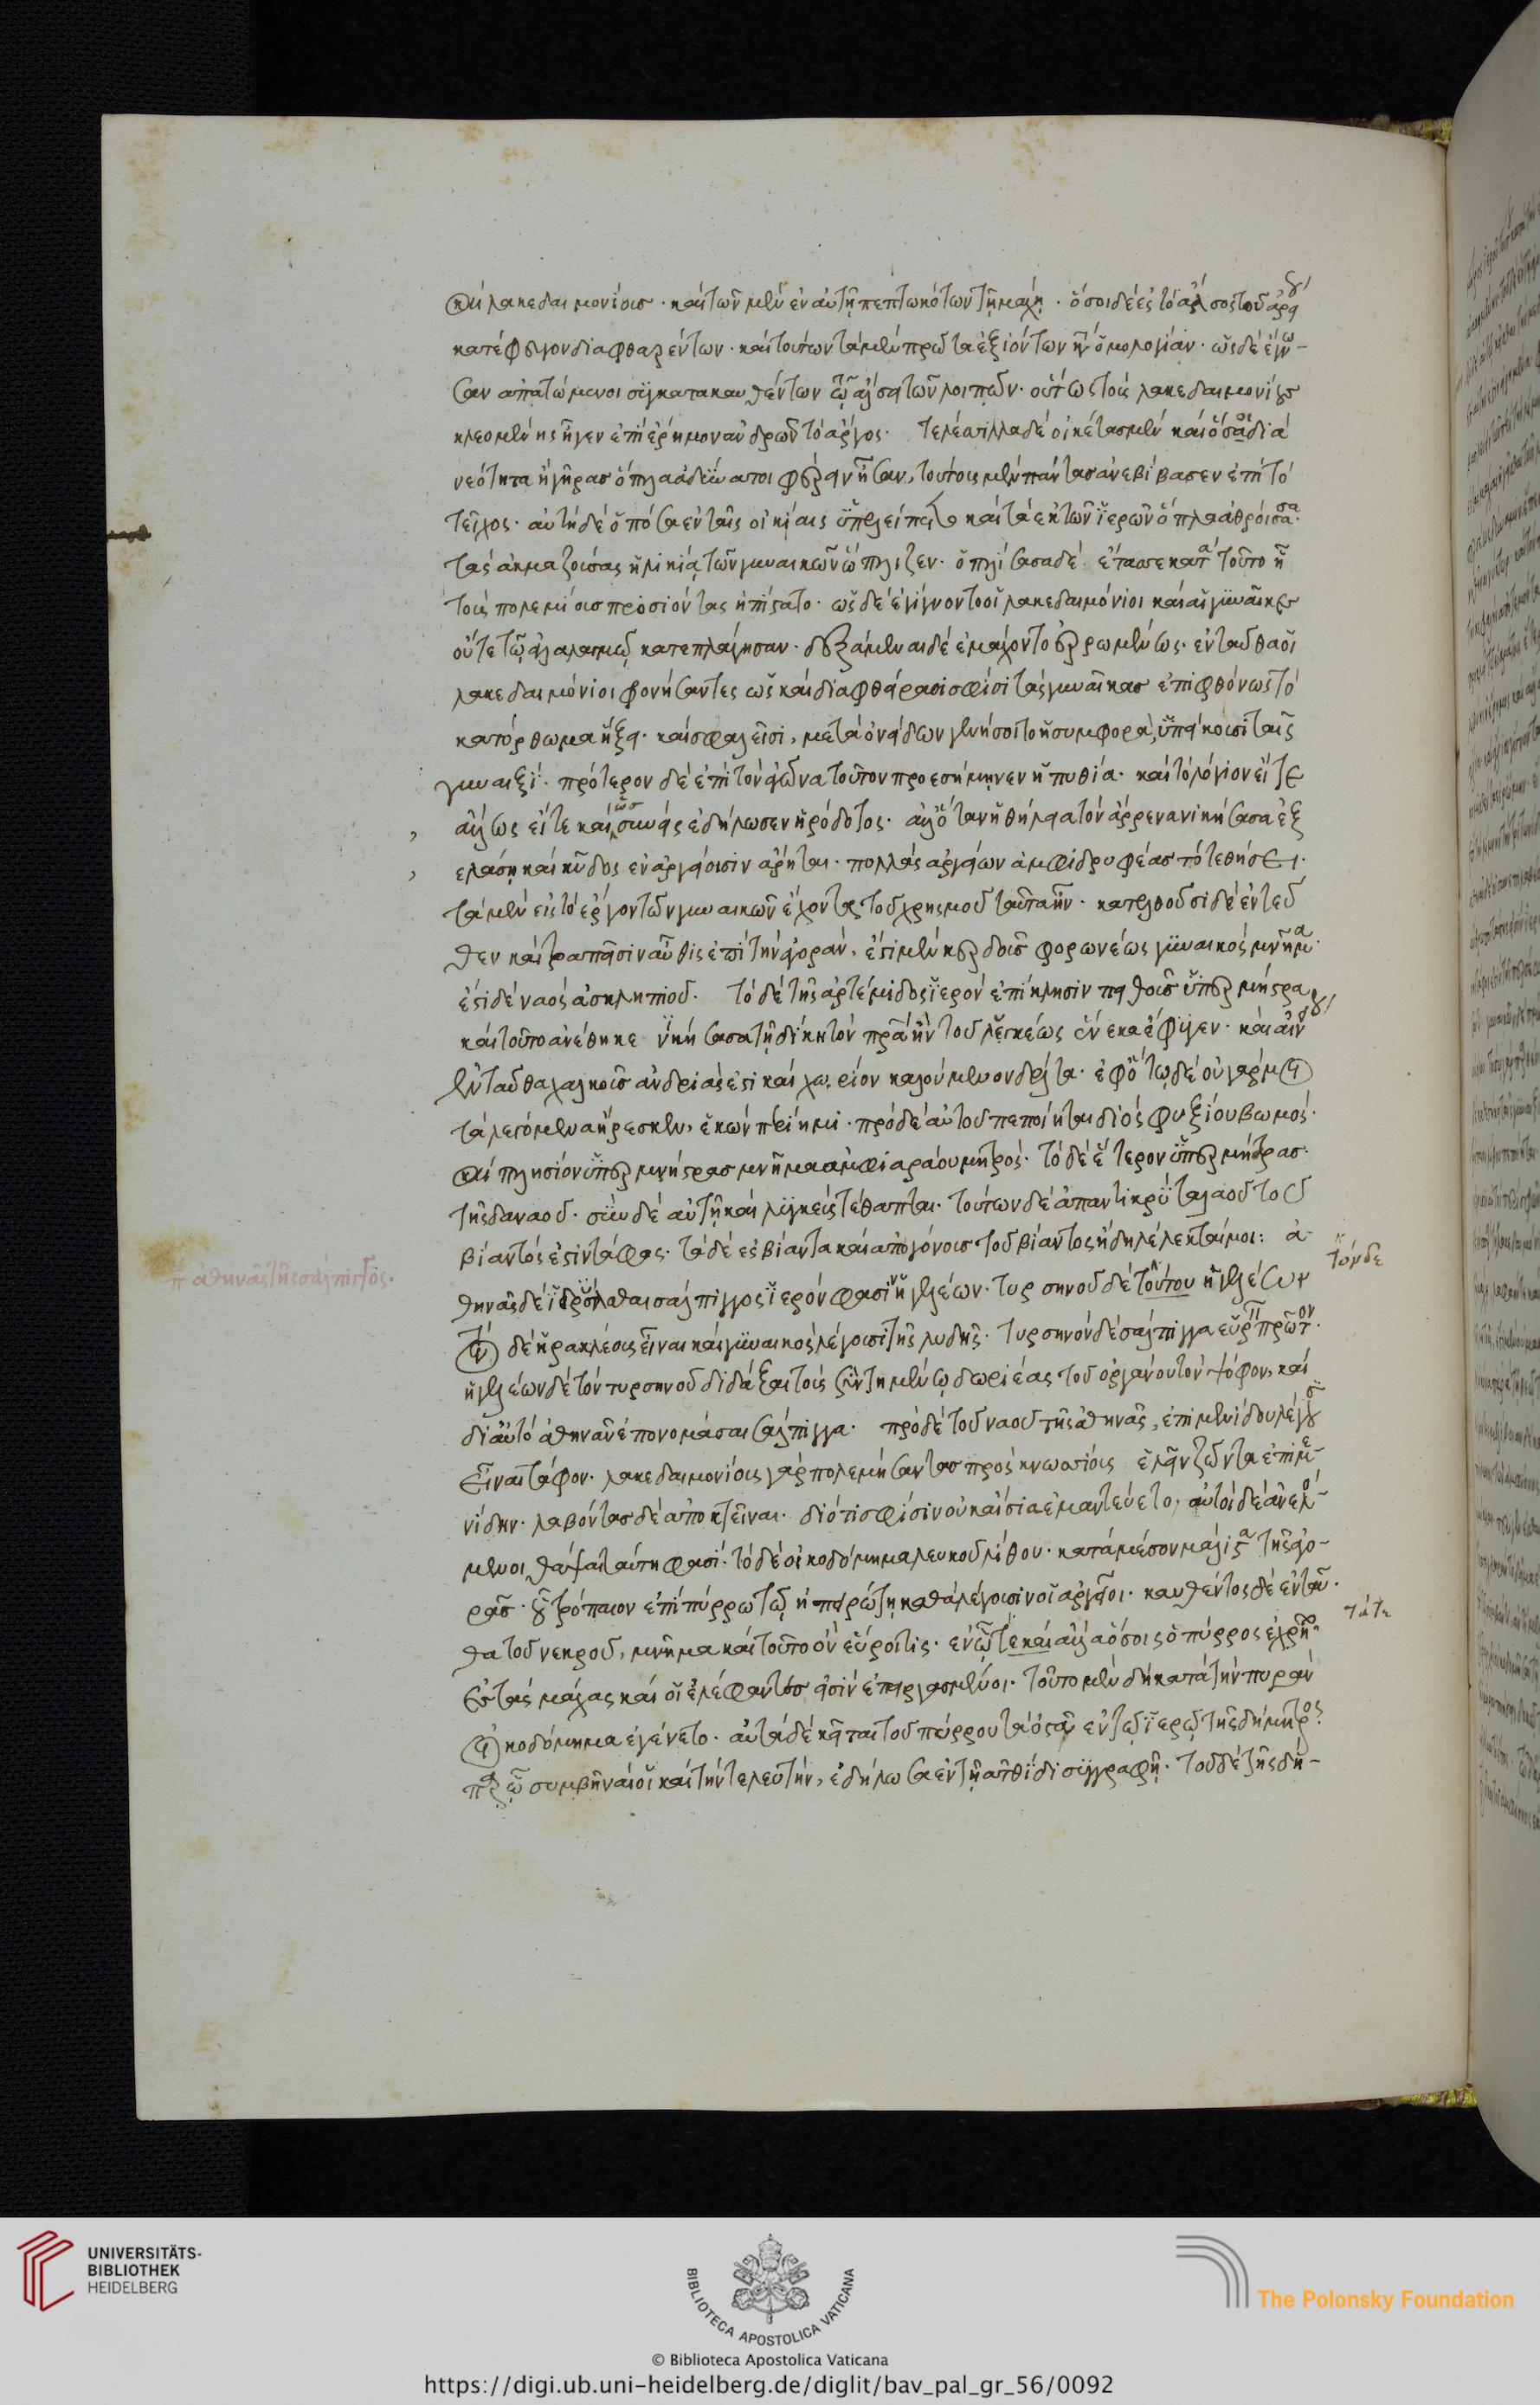 καὶ λακεδαιμονίοις · καὶ τῶν μὲν ἐν αὐτῇ πεπτωκότων τῇ μάχῃ · ὅσοι δὲ ἐς τὸ ἄλσος τοῦ ἄργου
κατέφευγον διαφθαρέντων · καὶ τούτων τὰ μὲν πρῶτα ἐξιόντων κατὰ ὁμολογίαν · ὡς δὲ ἔγνω-
σαν ἀπατώμενοι συγκατακαυθέντων τῷ ἄλσει τῶν λοιπῶν · οὕτως τοὺς λακεδαιμονίους
κλεομένης ἦγεν ἐπὶ ἔρημον ἀνδρῶν τὸ ἄργος · τελέσιλλα δὲ οἰκέτας μὲν καὶ ὅσοι διὰ
νεότητα ἢ γῆρας ὅπλα ἀδύνατοι φέρειν ἦσαν, τούτους μὲν πάντας ἀνεβίβασεν ἐπὶ τὸ
τεῖχος · αὐτὴ δὲ ὁπόσα ἐν ταῖς οἰκίαις ὑπελείπετο καὶ τὰ ἐκ τῶν ἱερῶν ὅπλα ἀθροίσασα ·
τὰς ἀκμαζούσας ἡλικίᾳ τῶν γυναικῶν ὥπλιζεν · ὁπλίσασα δὲ ἔτασσε κατὰ τοῦτο ᾗ
τοὺς πολεμίους προσιόντας ἠπίστατο · ὡς δὲ ἐγίγνοντο οἱ λακεδαιμόνιοι καὶ αἱ γυναῖκες
οὔτε τῷ ἀλαλαγμῷ κατεπλάγησαν · δεξάμεναι δὲ ἐμάχοντο ἐρρωμένως · ἐνταῦθα οἱ
λακεδαιμόνιοι φρονήσαντες ὡς καὶ διαφθείρασι σφίσι τὰς γυναῖκας ἐπιφθόνως τὸ
κατόρθωμα ἕξει · καὶ σφαλεῖσι, μετὰ ὀνειδῶν γενήσοιτο ἡ συμφορά, ὑπείκουσι ταῖς
γυναιξί · πρότερον δὲ ἔτι τὸν ἀγῶνα τοῦτον προεσήμηνεν ἡ πυθία · καὶ τὸ λόγιον εἴτε
ἄλλως εἴτε καὶ ὡς συνεὶς ἐδήλωσεν ἡρόδοτος · ἀλλ' ὅταν ἡ θήλεια τὸν ἄρρενα νικήσασα ἐξ
ελάσῃ καὶ κῦδος ἐν ἀργείοισιν ἄρηται · πολλὰς ἀργείων ἀμφιδρυφέας τότε θήσει ·
τὰ μὲν εἰς τὸ ἔργον τῶν γυναικῶν ἔχοντα τοῦ χρησμοῦ ταῦτα ἦν · κατελθοῦσι δὲ ἐντεῦ
θεν καὶ τραπεῖσιν αὖθις ἐπὶ τὴν ἀγορὰν, ἔστι μὲν κερδοῦς φορωνέως γυναικὸς μνῆμα ·
ἔστι δὲ ναὸς ἀσκληπιοῦ · τὸ δὲ τῆς ἀρτέμιδος ἱερὸν ἐπίκλησιν πειθοῦς ὑπερμήστρα
καὶ τοῦτο ἀνέθηκε νικήσασα τῇ δίκῃ τὸν πατέρα ἣν τοῦ λυγκέως ἕνεκα ἔφυγεν · καὶ αἰν
ἐνταῦθα χαλκοῦς ἀνδριάς ἐστι καὶ χωρίον καλούμενον δέλτα · ἐφ' ὅτῳ δὲ οὐ γάρ μοι
τὰ λεγόμενα ἤρεσκεν, ἑκὼν παρίημι · πρὸ δὲ αὐτοῦ πεποίηται διὸς φυξίου βωμός ·
καὶ πλησίον ὑπερμνήστρας μνῆμα ἀμφιαράου μητρός · τὸ δὲ ἕτερον ὑπερμήστρας ·
τῆς δαναοῦ · σὺν δὲ αὐτῇ καὶ λυγκεὺς τέθαπται · τούτων δὲ ἀπαντικρὺ ταλαοῦ τοῦ
βίαντός ἐστιν τάφος · τὰ δὲ ἐς βίαντα καὶ ἀπογόνους τοῦ βίαντος ἤδη λέλεκταί μοι : ἀ-
θηνᾶς δὲ ἱδρύσασθαι σάλπιγγος ἱερόν φασιν ἡγέλεων · τυρσηνοῦ δὲ τούτου ἡγέλεων
τὸν δὲ ἡρακλέους εἶναι καὶ γυναικὸς λέγουσι τῆς λυδῆς · τυρσηνὸν δὲ σάλπιγγα εὑρεῖν πρῶτον ·
ἡγέλεων δὲ τὸν τυρσηνοῦ διδάξαι τοὺς σὺν τημένῳ δωριέας τοῦ ὀργάνου τὸν ψόφον, καὶ
δι' αὐτὸ ἀθηνᾶν ἐπονομάσαι σάλπιγγα · πρὸ δὲ τοῦ ναοῦ τῆς ἀθηνᾶς, ἐπιμενίδου λέγουσιν
εἶναι τάφον · λακεδαιμονίους γὰρ πολεμήσαντας πρὸς κνωσίους ἑλεῖν ζῶντα ἐπιμε-
νίδην · λαβόντας δὲ ἀποκτεῖναι · διότι σφίσιν οὐκ αἴσια ἐμαντεύετο, αὐτοὶ δὲ ἀνελό-
μενοι θάψαι ταύτῃ φασί · τὸ δὲ οἰκοδόμημα λευκοῦ λίθου · κατὰ μέσον μάλιστα τῆς ἀγο-
ρᾶς · οὐ τρόπαιον ἐπὶ πύρρῳ τῷ ἠπειρώτῃ καθὰ λέγουσιν οἱ ἀργεῖοι · καυθέντος δὲ ἐνταῦ-
θα τοῦ νεκροῦ, μνῆμα καὶ τοῦτο ἂν εὕροι τις · ἐν ᾧ τε καὶ ἄλλα ὅσοις ὁ πύρρος ἐχρῆτο
ἐς τὰς μάχας καὶ οἱ ἐλέφαντές εἰσιν ἐπειργασμένοι · τοῦτο μὲν δὴ κατὰ τὴν πυρὰν
οἰκοδόμημα ἐγένετο · αὐτὰ δὲ κεῖται τοῦ πύρρου τὰ ὀστᾶ ἐν τῷ ἱερῷ τῆς δήμητρος
παρ' ᾧ συμβῆναί οἱ καὶ τὴν τελευτήν, ἐδήλωσα ἐν τῇ ἀτθίδι συγγραφῇ · τοῦ δὲ τῆς δή-
π ἀθηνᾶς τῆς σάλπιγγος.
τόνδε
τά τε
UNIVERSITÄTS-
BIBLIOTHEK
HEIDELBERG
BIBLIOTECA APOSTOLICA VATICANA
The Polonsky Foundation
© Biblioteca Apostolica Vaticana
https://digi.ub.uni-heidelberg.de/diglit/bav_pal_gr_56/0092